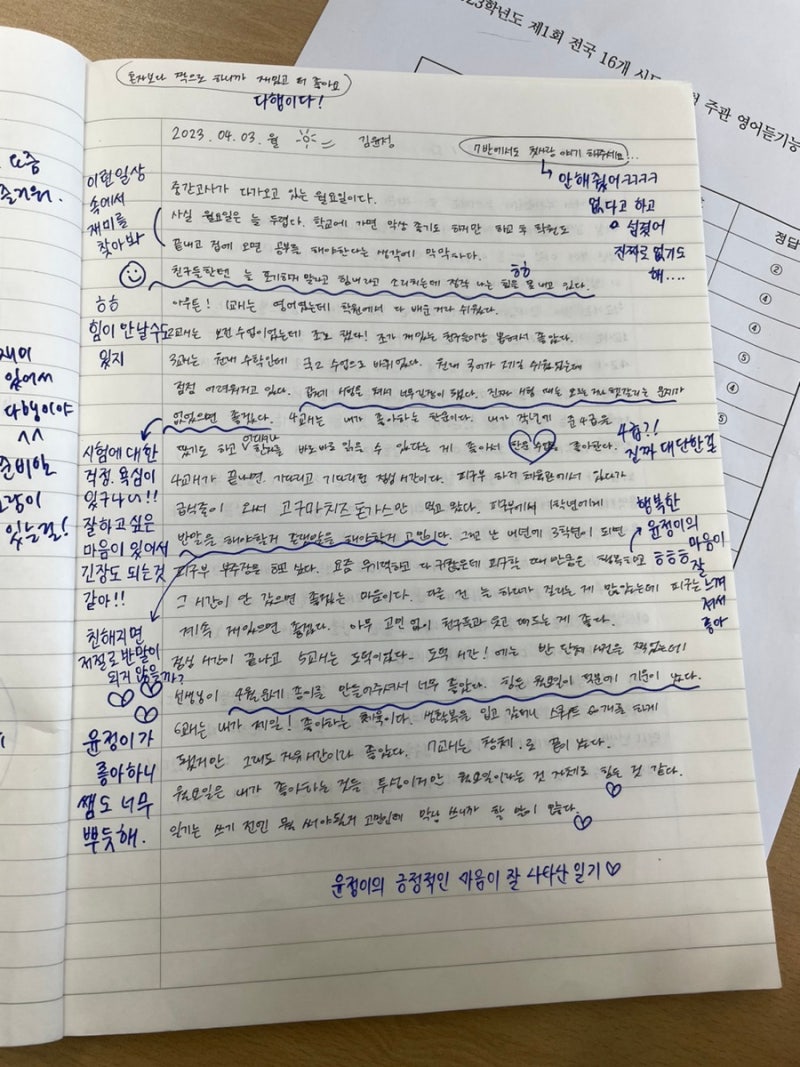 혼자보다 짝으로 하니까 재밌고 더 좋아요
다행이다!
2023. 04. 03. 월 김윤정
7반에서도 첫사랑 얘기 해주세요!...
안해줬어ㅋㅋㅋㅋ
없다고 하고
넘겼어
진짜로 없기도
해....
이런일상
속에서
재미를
찾아봐
중간고사가 다가오고 있는 월요일이다.
사실 월요일은 늘 두렵다. 학교에 가면 막상 즐기도 하지만 하교 후 학원도
끝내고 집에 오면 공부를 해야한다는 생각에 막막하다.
친구들한텐 늘 포기하지 말라고 힘내라고 소리치는데 정작 나는 힘을 못 내고 있다.
ㅎㅎ
ㅎㅎ
힘이 안날수도
있지
아무튼! 1교시는 영어였는데 학원에서 다 배운거라 쉬웠다.
2교시는 보건 수업이었는데 조도 짰다! 조가 재밌는 친구들이랑 뽑혀서 좋았다.
3교시는 원래 수학인데 국2 수업으로 바뀌었다. 원래 국어가 제일 쉬웠는데
점점 어려워지고 있다. 곧 시험을 쳐서 너무 긴장이 됐다. 진짜 시험 때는 모르는 거나 헷갈리는 문제가
없었으면 좋겠다. 4교시는 내가 좋아하는 한문이다. 내가 작년에 준4급을
땄기도 하고 어디서나 한자를 바로바로 읽을 수 있다는 게 좋아서 한문 수업을 좋아한다.
4급?!
진짜 대단한걸
시험에 대한
걱정. 욕심이
있구나!!
잘하고 싶은
마음이 있어서
긴장도 되는것
같아!!
4교시가 끝나면 기다리고 기다리던 점심 시간이다. 피구부 하러 체육관에서 있다가
급식줄이 와서 고구마치즈돈가스만 먹고 왔다. 피구부에서 1학년에게
반말을 해야할지 존댓말을 해야할지 고민이다. 그리고 난 내년에 3학년이 되면
피구부 부주장을 하고 싶다. 요즘 무기력하고 다 귀찮은데 피구할 때 만큼은 행복하고
그 시간이 안 갔으면 좋겠는 마음이다. 다른 건 늘 하다가 질리는 게 많았는데 피구는
계속 재밌었으면 좋겠다. 아무 고민 없이 친구들과 웃고 떠드는 게 좋다.
행복한
윤정이의
마음이
ㅎㅎㅎ 잘
느껴
져서
좋아
친해지면
저절로 반말이
되지 않을까?
점심 시간이 끝나고 5교시는 도덕이었다. 도덕 시간!에는 반 단체 사진을 찍었는데
선생님이 4월 운세 종이를 만들어주셔서 너무 좋았다. 힘든 월요일이 덕분에 기운이 났다.
6교시는 내가 제일! 좋아하는 체육이다. 생활복을 입고 갔더니 스쿼트 60개를 하게
됐지만 그래도 자유시간이라 좋았다. 7교시는 창체.로 끝이 났다.
월요일은 내가 좋아하는 것들 투성이지만 월요일이라는 것 자체로 힘든 것 같다.
일기는 쓰기 전엔 뭘 써야될지 고민인데 막상 쓰니까 할 말이 많다.
윤정이가
좋아하니
쌤도 너무
뿌듯해.
윤정이의 긍정적인 마음이 잘 나타난 일기♡
요즘
즐거워.
있어서
다행이야
^^
있는걸!
23학년도 제1회 전국 16개 시도
주관 영어듣기능
정답
②
④
④
⑤
④
⑤